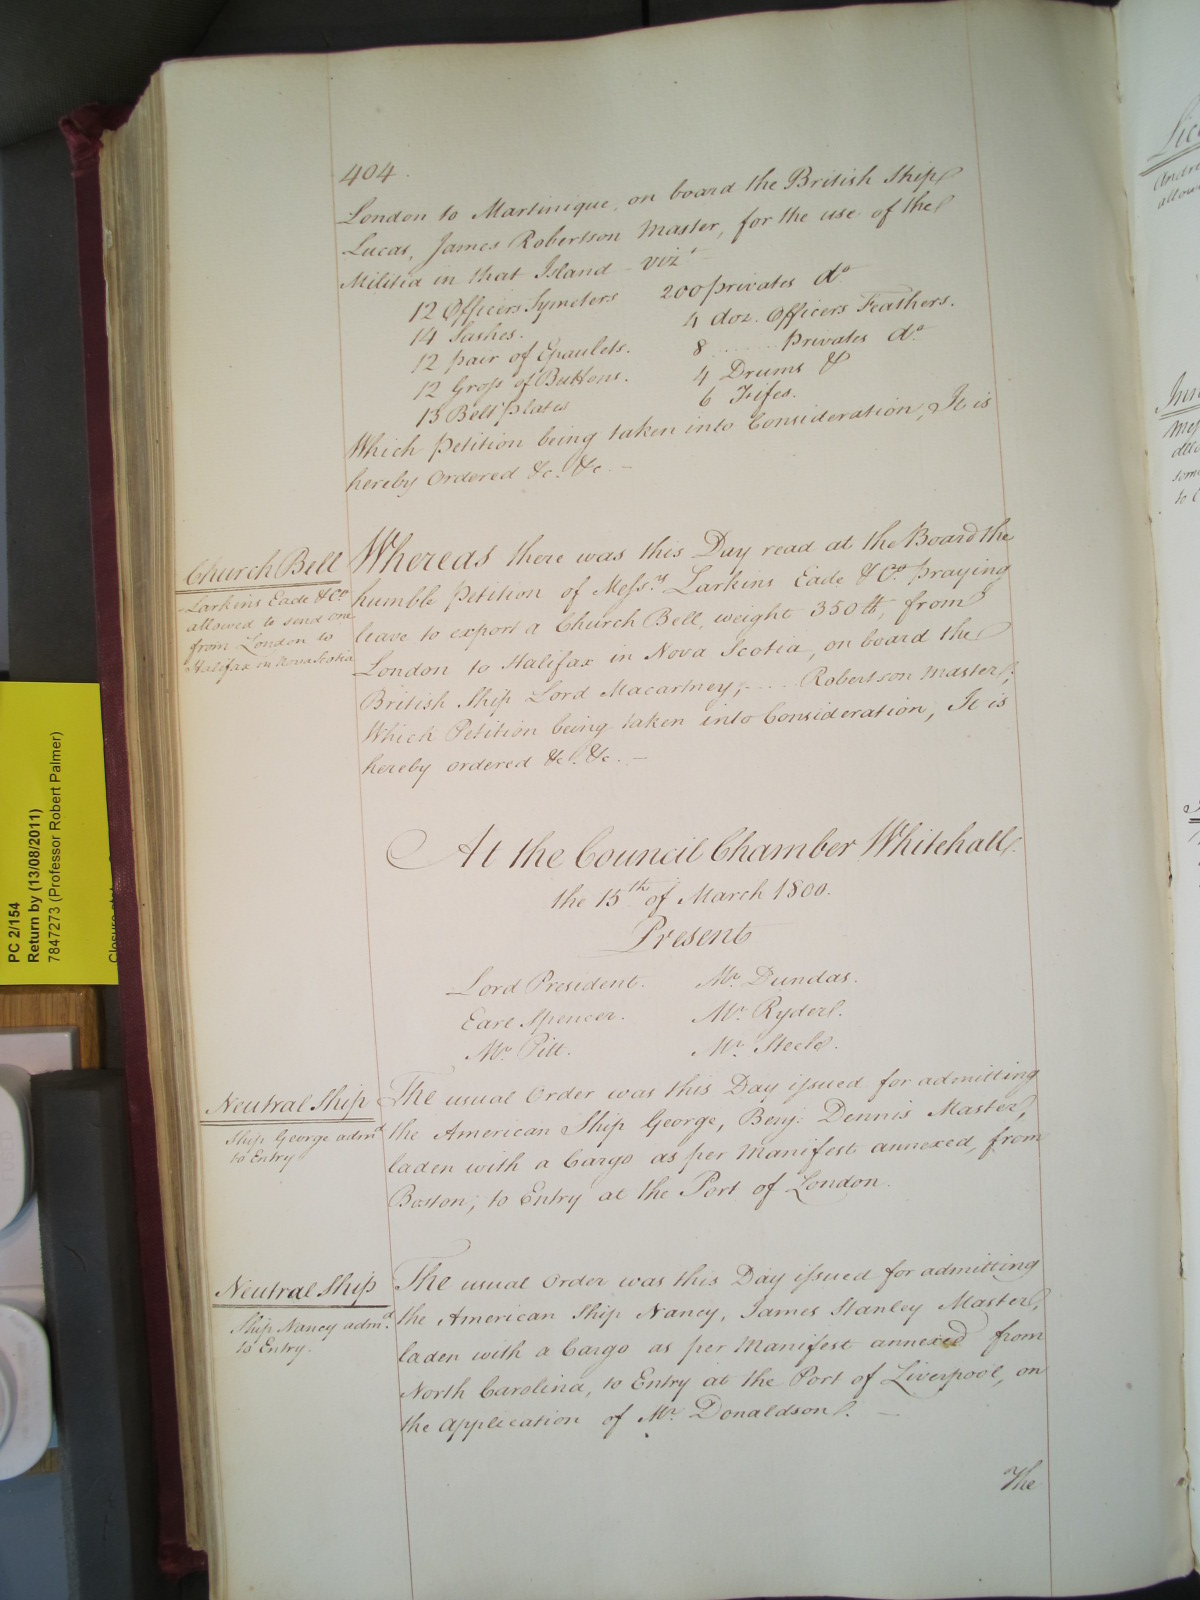 404.
London to Martinique, on board the British Ship
Lucas, James Robertson Master, for the use of the
Militia in that Island vizt
12 Officers Symeters 200 privates do
14 Sashes. 4 doz. Officers Feathers.
12 pair of Epaulets. 8 ...... privates do
12 Gross of Buttons. 4 Drums &
13 Belt plates 6 Fifes.
Which Petition being taken into Consideration, It is
hereby Ordered &c. &c. —
Church Bell
Larkins Eade & Co.
allowed to send one
from London to
Halifax in Nova Scotia
Whereas there was this Day read at the Board the
humble Petition of Messrs Larkins Eade & Co. praying
leave to export a Church Bell, weight 350 lb, from
London to Halifax in Nova Scotia, on board the
British Ship Lord Macartney, .... Robertson Master;
Which Petition being taken into Consideration, It is
hereby ordered &c. &c. —
At the Council Chamber Whitehall
the 15th of March 1800.
Present
Lord President. Mr. Dundas.
Earl Spencer. Mr. Ryder.
Mr. Pitt. Mr. Steele.
Neutral Ship
Ship George admd
to Entry
The usual Order was this Day issued for admitting
the American Ship George, Benj: Dennis Master,
laden with a Cargo as per Manifest annexed, from
Boston, to Entry at the Port of London.
Neutral Ship
Ship Nancy admd.
to Entry.
The usual Order was this Day issued for admitting
the American Ship Nancy, James Stanley Master,
laden with a Cargo as per Manifest annexed from
North Carolina, to Entry at the Port of Liverpool, on
the application of Mr. Donaldson. —
The
PC 2/154
Return by (13/08/2011)
7847273 (Professor Robert Palmer)